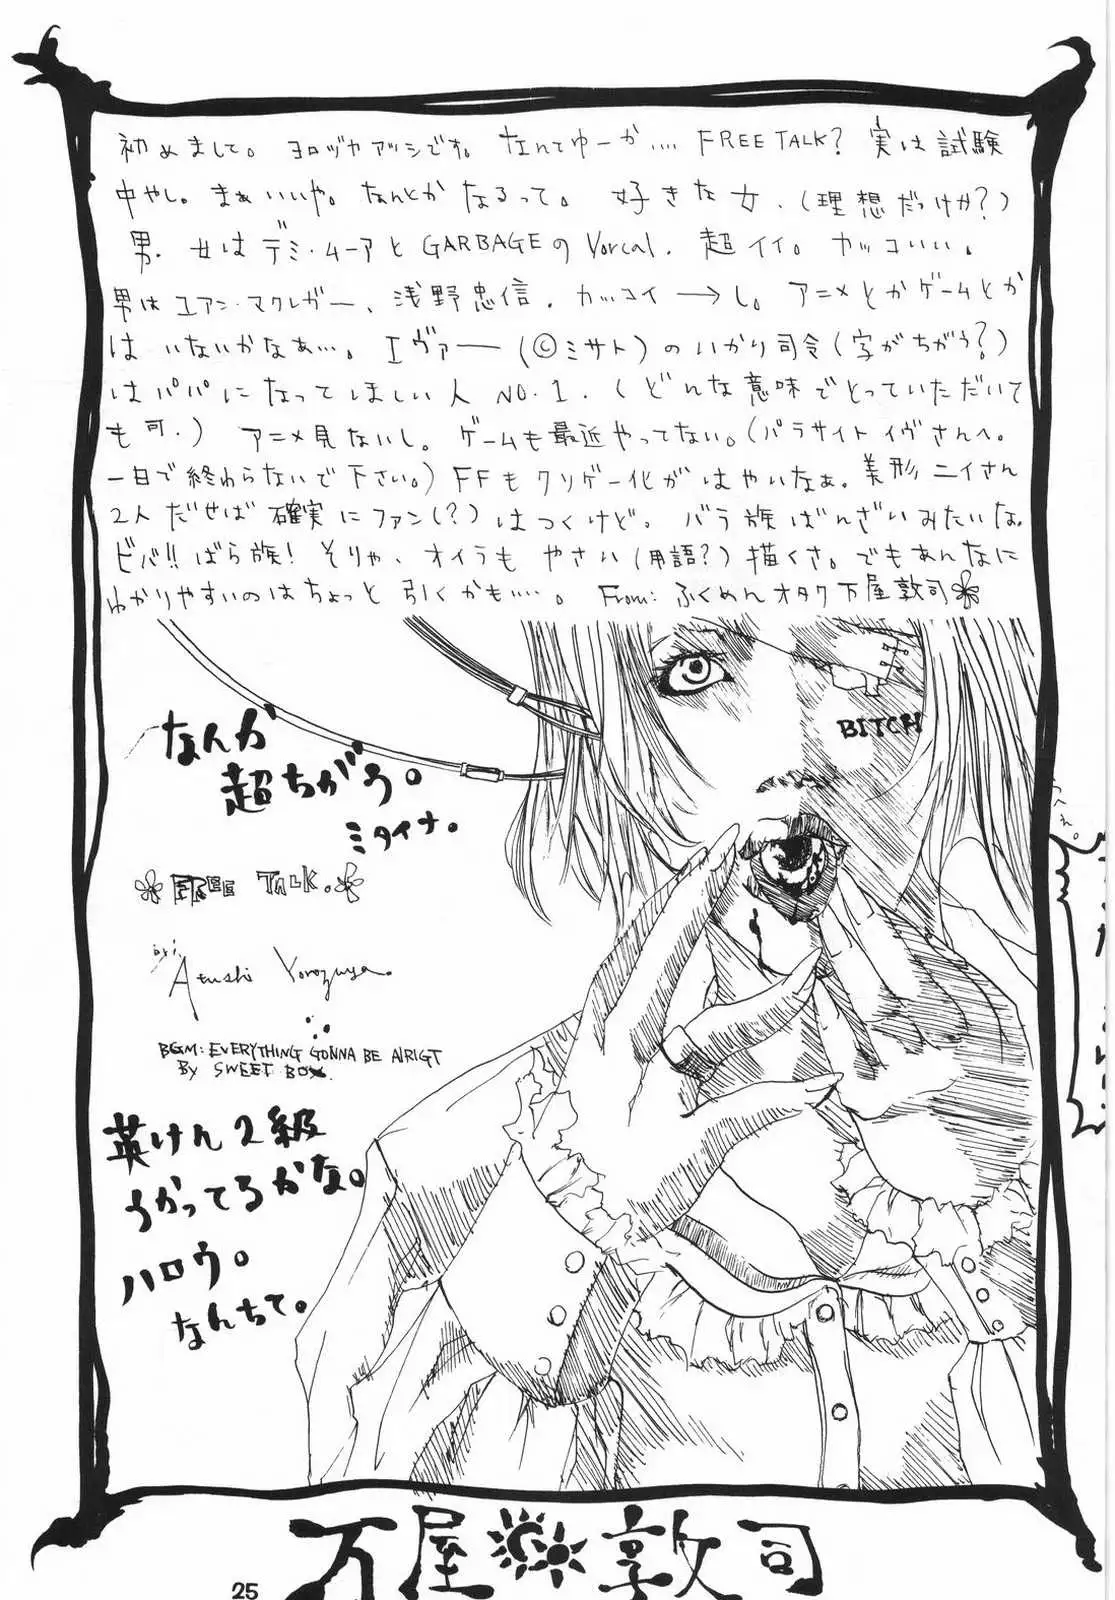 初めまして。ヨロヅヤアツシです。なんてゆーか…. FREE TALK? 実は試験
中やし。まぁいいや。なんとかなるって。好きな女.(理想だっけか?)
男. 女はデミ・ムーアとGARBAGEのVorcal. 超イイ。カッコいい。
男はユアン・マクレガー、浅野忠信. カッコイ→し。アニメとかゲームとか
はいないかなぁ…。エヴァー(©ミサト)のいかり司令(字がちがう?)
はパパになってほしい人NO.1.(どんな意味でとっていただいて
も可.) アニメ見ないし。ゲームも最近やってない。(パラサイトイヴさんへ。
一日で終わらないで下さい。)FFもクソゲー化がはやいなぁ。美形ニイさん
2人だせば確実にファン(?)はつくけど。バラ族ばんざいみたいな。
ビバ!!ばら族! そりゃ、オイラもやさい(用語?)描くさ。でもあんなに
わかりやすいのはちょっと引くかも….。From: ふくめんオタク万屋敦司
BITCH
なんか
超ちがう。
ミタイナ。
FREE TALK.
by: Atushi Yorozuya.
BGM: EVERYTHING GONNA BE ALRIGT
BY SWEET BOX.
英けん2級
うかってるかな。
ハロウ。
なんちて。
万屋敦司
25